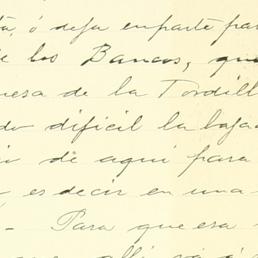 ó deja en parte par
de los Bancos, qu
esa de la Tordill
do dificil la baja
de aqui para
es decir en una
- Para que esa
alli